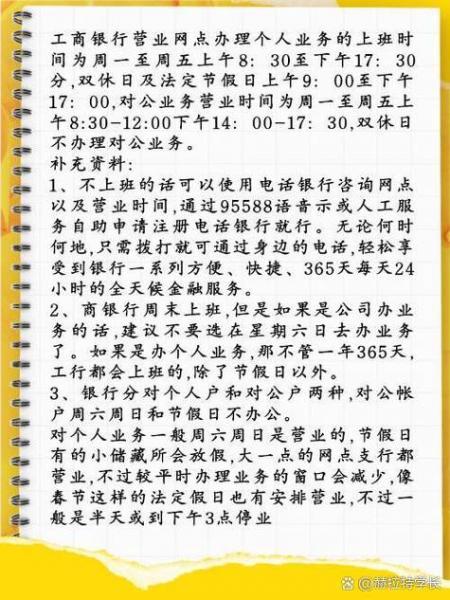 工商银行营业网点办理个人业务的上班时
间为周一至周五上午8：30至下午17：30
分,双休日及法定节假日上午9：00至下午
17：00,对公业务营业时间为周一至周五上
午8:30-12:00下午14：00-17：30,双休日
不办理对公业务。
补充资料:
1、不上班的话可以使用电话银行咨询网点
以及营业时间,通过95588语音示或人工服
务自助申请注册电话银行就行。无论何时
何地,只需拨打就可通过身边的电话,轻松享
受到银行一系列方便、快捷、365天每天24
小时的全天侯金融服务。
2、商银行周末上班,但是如果是公司办业
务的话,建议不要选在星期六日去办业务
了。如果是办个人业务,那不管一年365天,
工行都会上班的,除了节假日以外。
3、银行分对个人户和对公户两种,对公帐
户周六周日和节假日不办公。
对个人业务一般周六周日是营业的,节假日
有的小储藏所会放假,大一点的网点支行都
营业,不过较平时办理业务的窗口会减少,像
春节这样的法定假日也有安排营业,不过一
般是半天或到下午3点停业
百家号/赫拉特学长